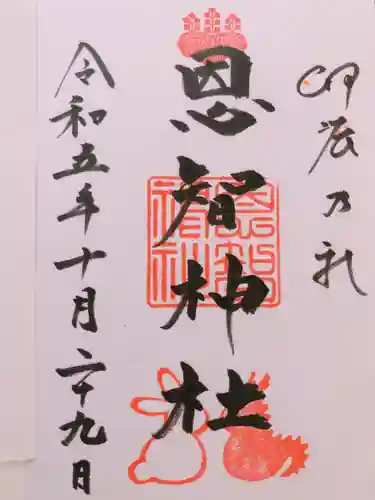 卯辰乃礼
恩智神社
令和五年十月二十九日
恩智神社